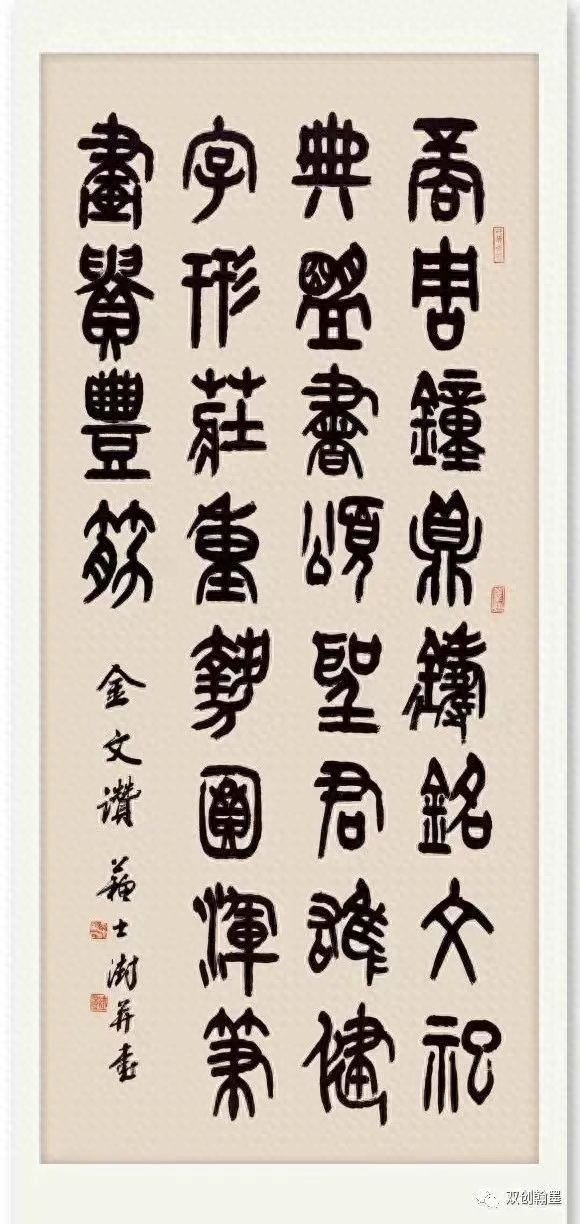 商周鐘鼎鑄銘文祀
典盟書頌聖君雄健
字形莊重勢圓渾筆
畫貴豐筋
金文讚 蘇士澍并書
双创翰墨